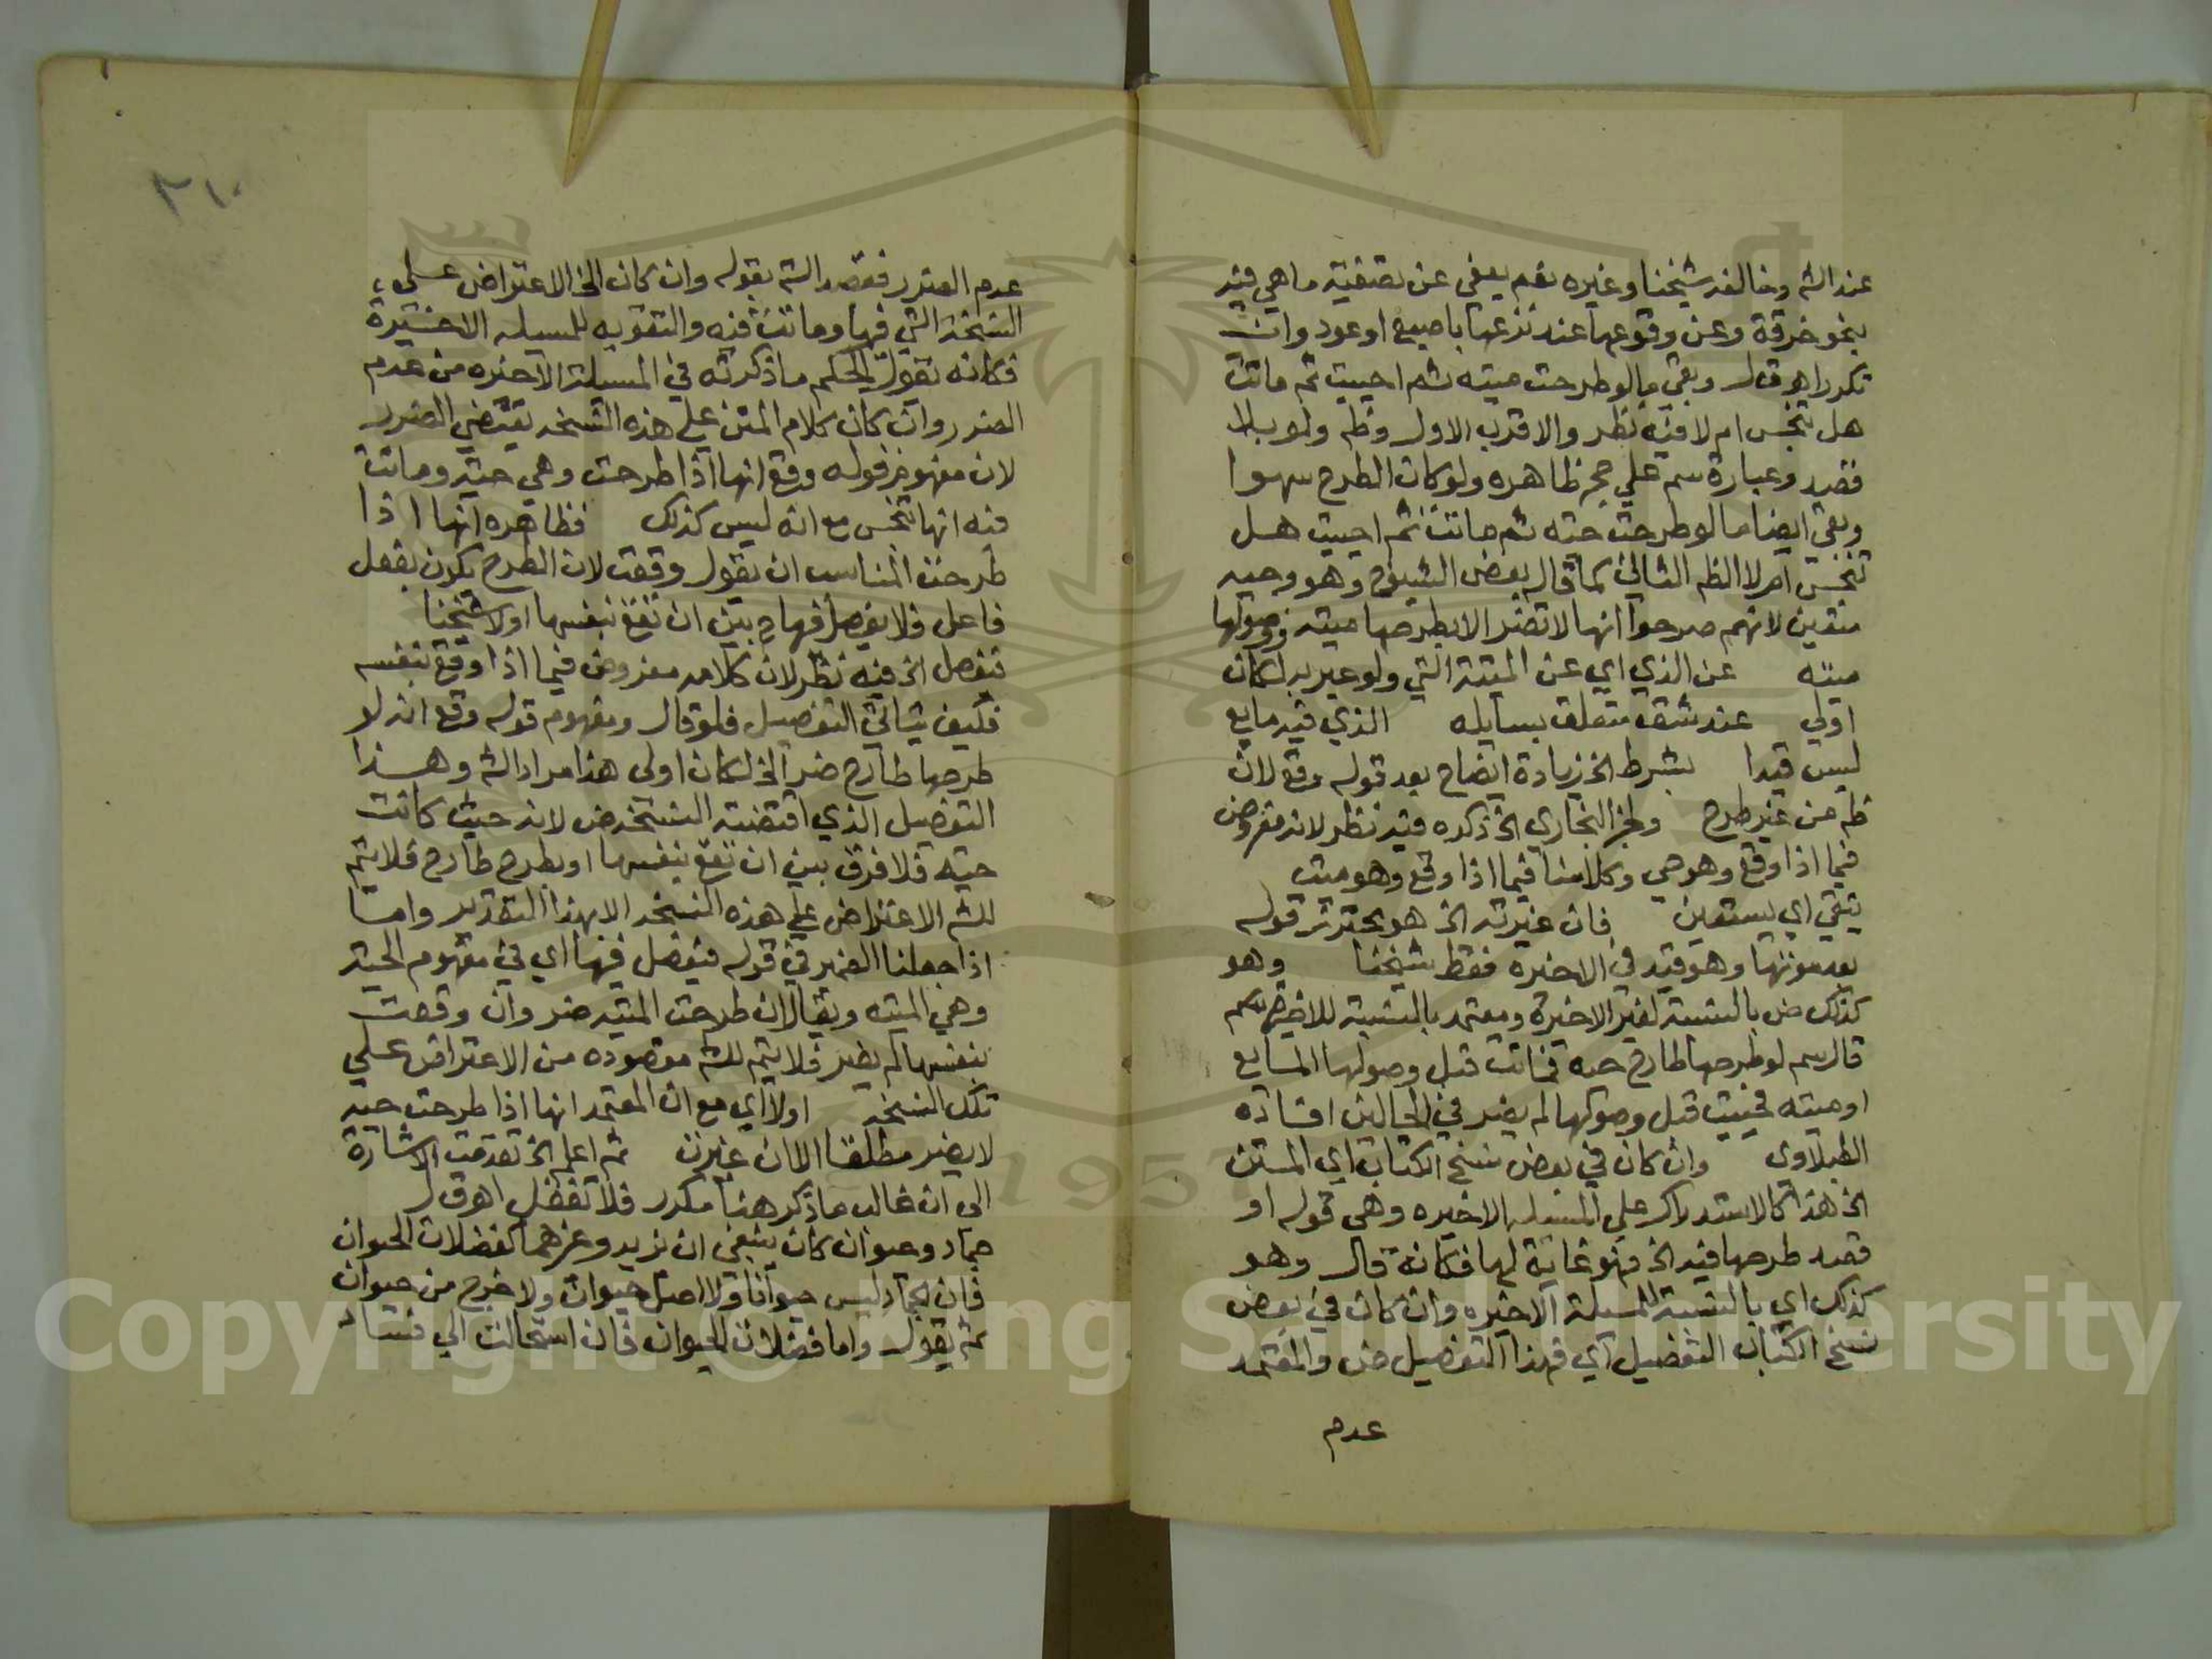 عند الشم وخالفه شيخنا وغيره نعم يعفي عن تصفية ما هي فيه
بنحو خرقة وعن وقوعها عند نزعها باصبع او عود وان
تكرر اهـ ق ل وبقي ما لو طرحت ميته ثم احييت ثم ماتت
هل تنجس ام لا فيه نظر والاقرب الاول وظم ولو بلا
قصد وعبارة سم علي حج ظاهره ولو كان الطرح سهوا
وبقي ايضا ما لو طرحت حيه ثم ماتت ثم احييت هل
تنجس ام لا الظم الثاني كما قال بعض الشيوخ وهو وجيه
متعين لانهم صرحوا انها لا تضر الا بطرحها ميته ووصولها
ميته عن الذي اي عن الميتة التي ولو عبر به لكان
اولي عند شق متعلق بسايله الذي فيه مايع
ليس قيدا بشرط الخ زيادة ايضاح بعد قوله وقع لان
ظم من غير طرح ولخبر البخاري الخ ذكره فيه نظر لانه مفروض
فيما اذا وقع وهو حي وكلامنا فيما اذا وقع وهو ميت
يتقي اي يستعين فان غيرته الخ هو محترز قوله
بعد موتها وهو قيد في الاخيره فقط شيخنا وهو
كذلك ض بالنسبة لغير الاخيرة ومعتمد بالنسبة للاخيره سم
قال سم لو طرحها طارح حيه فماتت قبل وصولها المايع
او ميته فحييت قبل وصولها لم يضر في الحالين افاده
الطبلاوي وان كان في بعض نسخ الكتاب اي المتن
الخ هذا كالاستدراك علي المسله الاخيره وهي قوله او
قصد طرحها فيه الخ فهو غاية لها فكانه قال وهو
كذلك اي بالنسبة للمسلة الاخيره وان كان في بعض
نسخ الكتاب التفصيل اي فهذا التفصيل ض والمعتمد
عدم
٢١٠
عدم الضرر فقصد الشم بقوله وان كان الخ الاعتراض علي
النسخة التي فيها وماتت فيه والتقويه للمسيله الاخيرة
فكانه يقول الحكم ما ذكرته في المسيلة الاخيره من عدم
الضرر وان كان كلام المتن علي هذه النسخه يقتضي الضرر
لان مفهوم قوله وقع انها اذا طرحت وهي حيه وماتت
فيه انها تنجس مع انه ليس كذلك فظاهره انها اذا
طرحت المناسب ان يقول وقعت لان الطرح يكون بفعل
فاعل فلا يفصل فيها ح بين ان تقع بنفسها او لا شيخنا
تفصل الخ فيه نظر لان كلامه مفروض فيما اذا وقع بنفسه
فكيف يتاتي التفصيل فلو قال ومفهوم قوله وقع انه لو
طرحها طارح ضر الخ لكان اولي هذا مراد الشم وهذا
التفصيل الذي اقتضته النسخه ض لانه حيث كانت
حيه فلا فرق بين ان تقع بنفسها او بطرح طارح فلا يتم
للشم الاعتراض علي هذه النسخه الا بهذا التقدير واما
اذا جعلنا الضمير في قوله فيفصل فيها اي في مفهوم الحيه
وهي الميته ويقال ان طرحت الميته ضر وان وقعت
بنفسها لم يضر فلا يتم للشم مقصوده من الاعتراض علي
تلك النسخه اولا اي مع ان المعتمد انها اذا طرحت حيه
لا يضر مطلقا الا ان غيرت ثم اعلم الخ تقدمت الاشارة
الي ان غالب ما ذكر هنا مكرر فلا تغفل اهـ ق ل
جماد وحيوان كان ينبغي ان يزيد وغيرهما كفضلات الحيوان
فان الجماد ليس حيوانا ولا اصل حيوان ولا خرج من حيوان
ثم يقول واما فضلات الحيوان فان استحالت الي فساد